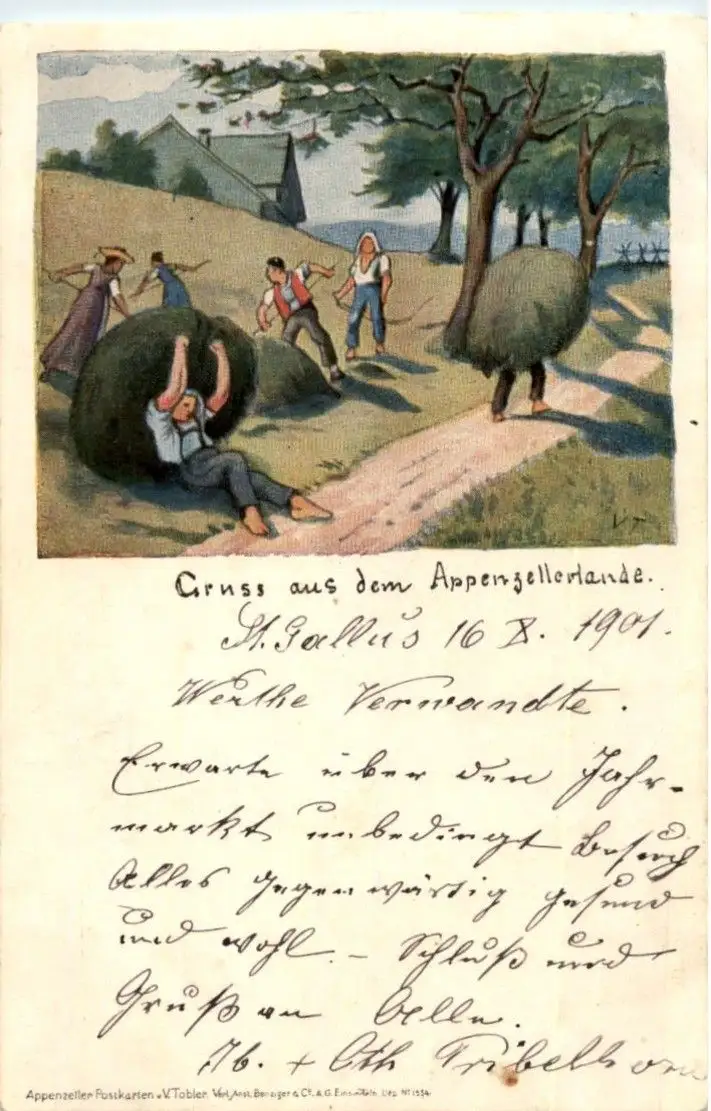 Gruss aus dem Appenzellerlande.
St. Gallus 16 X. 1901.
Werthe Verwandte.
Erwarte über den Jahr-
markt unbedingt Besuch
Alles gegenwärtig gesund
und wohl. - Schluß und
Gruß an Alle.
Appenzeller Postkarten v. V. Tobler. Verl. Anst. Benziger & Cº. A.G. Einsiedeln. Dép. Nº 1554.